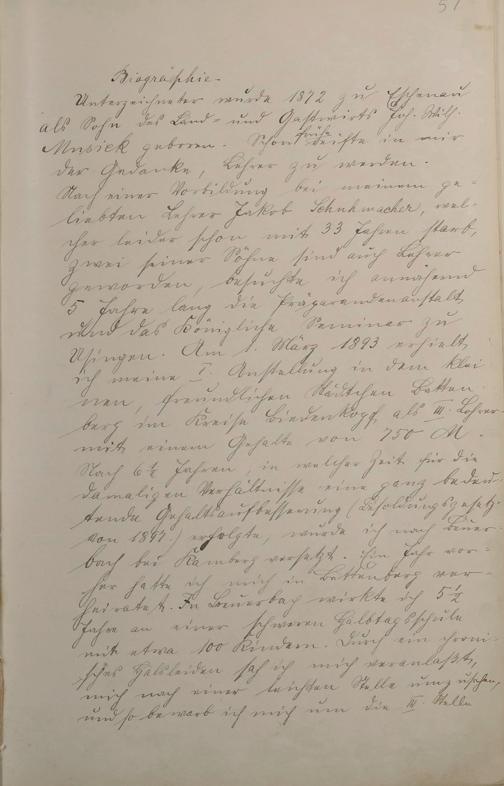 51
Biographie.
Unterzeichneter wurde 1872 zu Eschenau
als Sohn des Land- und Gastwirts Joh. Wilh.
Musiek geboren. Schon frühe reifte in mir
der Gedanke, Lehrer zu werden.
Nach einer Vorbildung bei meinem ge-
liebten Lehrer Jakob Schuhmacher, wel-
cher leider schon mit 33 Jahren starb,
zwei seiner Söhne sind auch Lehrer
geworden, besuchte ich annähernd
5 Jahre lang die Präparandenanstalt
und das Königliche Seminar zu
Usingen. Am 1. März 1893 erhielt
ich meine I. Anstellung in dem klei
nen, freundlichen Städtchen Batten
berg im Kreise Biedenkopf als III. Lehrer
mit einem Gehalte von 750 M.
Nach 6½ Jahren, in welcher Zeit für die
damaligen Verhältnisse eine ganz bedeu-
tende Gehaltsaufbesserung (Besoldungsgesetz
von 1897) erfolgte, wurde ich nach Beuer-
bach bei Kamberg versetzt. Ein Jahr vor-
her hatte ich mich in Battenberg ver-
heiratet. In Beuerbach wirkte ich 5½
Jahre an einer schweren Halbtagsschule
mit etwa 100 Kindern. Durch ein chroni-
sches Halsleiden sah ich mich veranlaßt,
mich nach einer leichten Stelle umzusehen,
und so bewarb ich mich um die III. Stelle